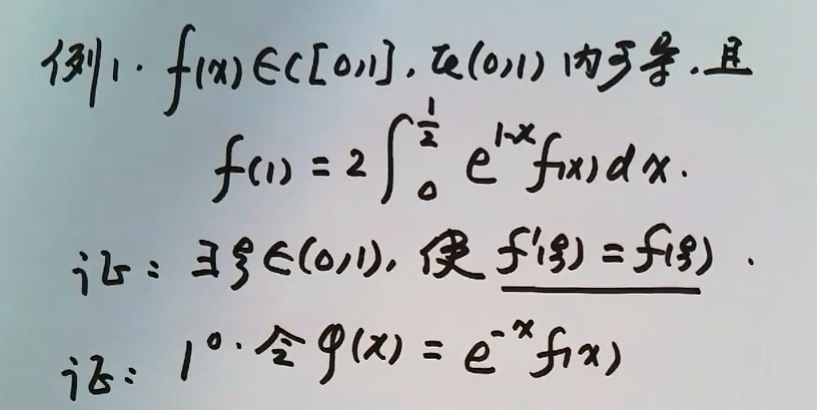 例1. f(x)∈C[0,1], 在(0,1)内可导, 且
f(1) = 2∫₀^(1/2) e^(1-x) f(x)dx.
证: ∃ξ∈(0,1), 使 f'(ξ) = f(ξ).
证: 1°. 令φ(x) = e^(-x) f(x)